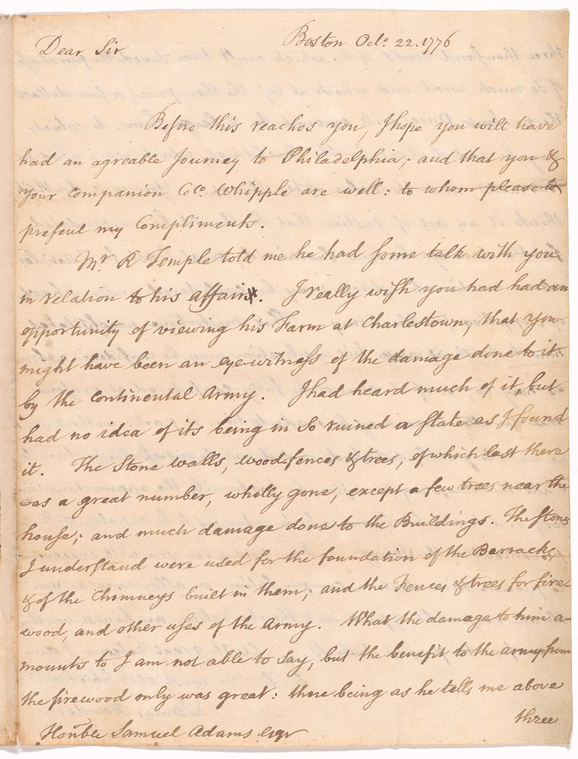 Dear Sir
Boston Octr. 22. 1776
Before this reaches you, I hope you will have
had an agreable Journey to Philadelphia; and that you &
your companion Col. Whipple are well: to whom please to
present my Compliments.
Mr. R Temple told me he had some talk with you
in relation to his affair. I really wish you had had an
opportunity of viewing his Farm at Charlestown, that you
might have been an eye-witness of the damage done to it
by the Continental Army. I had heard much of it, but
had no idea of its being in so ruined a state as I found
it. The Stone walls, wood fences & trees, of which last there
was a great number, wholly gone, except a few trees near the
house; and much damage done to the Buildings. The stones
I understand were used for the foundation of the Barracks
& of the Chimneys built in them; and the Fences & trees for fire
wood, and other uses of the Army. What the damage to him a-
mounts to I am not able to say, but the benefit to the army from
the firewood only was great: there being as he tells me above
three
Honble Samuel Adams Esqr